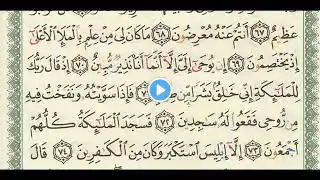 عَظِيمٌ ﴿٦٧﴾ أَنتُمْ عَنْهُ مُعْرِضُونَ ﴿٦٨﴾ مَا كَانَ لِىَ مِنْ عِلْمٍۭ بِٱلْمَلَإِ ٱلْأَعْلَىٰٓ
إِذْ يَخْتَصِمُونَ ﴿٦٩﴾ إِن يُوحَىٰٓ إِلَىَّ إِلَّآ أَنَّمَآ أَنَا۠ نَذِيرٌ مُّبِينٌ ﴿٧٠﴾ إِذْ قَالَ رَبُّكَ
لِلْمَلَٰٓئِكَةِ إِنِّى خَٰلِقٌۢ بَشَرًا مِّن طِينٍ ﴿٧١﴾ فَإِذَا سَوَّيْتُهُۥ وَنَفَخْتُ فِيهِ
مِن رُّوحِى فَقَعُوا۟ لَهُۥ سَٰجِدِينَ ﴿٧٢﴾ فَسَجَدَ ٱلْمَلَٰٓئِكَةُ كُلُّهُمْ
أَجْمَعُونَ ﴿٧٣﴾ إِلَّآ إِبْلِيسَ ٱسْتَكْبَرَ وَكَانَ مِنَ ٱلْكَٰفِرِينَ ﴿٧٤﴾ قَالَ